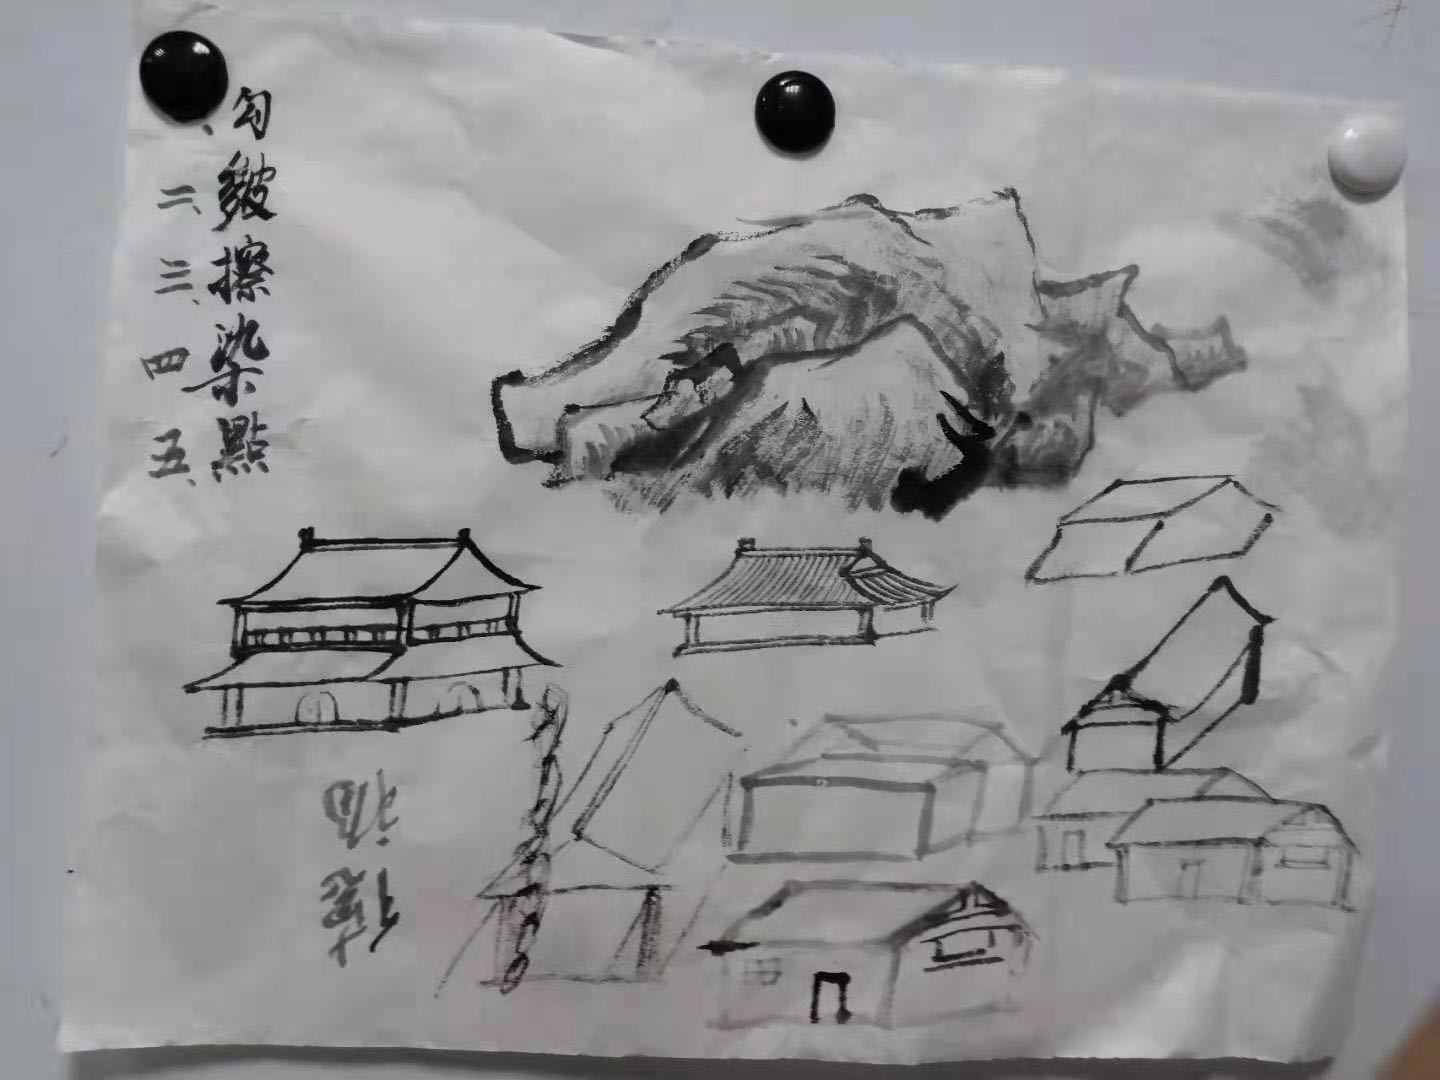 、勾
二、皺
三、擦
四、染
五、點
德